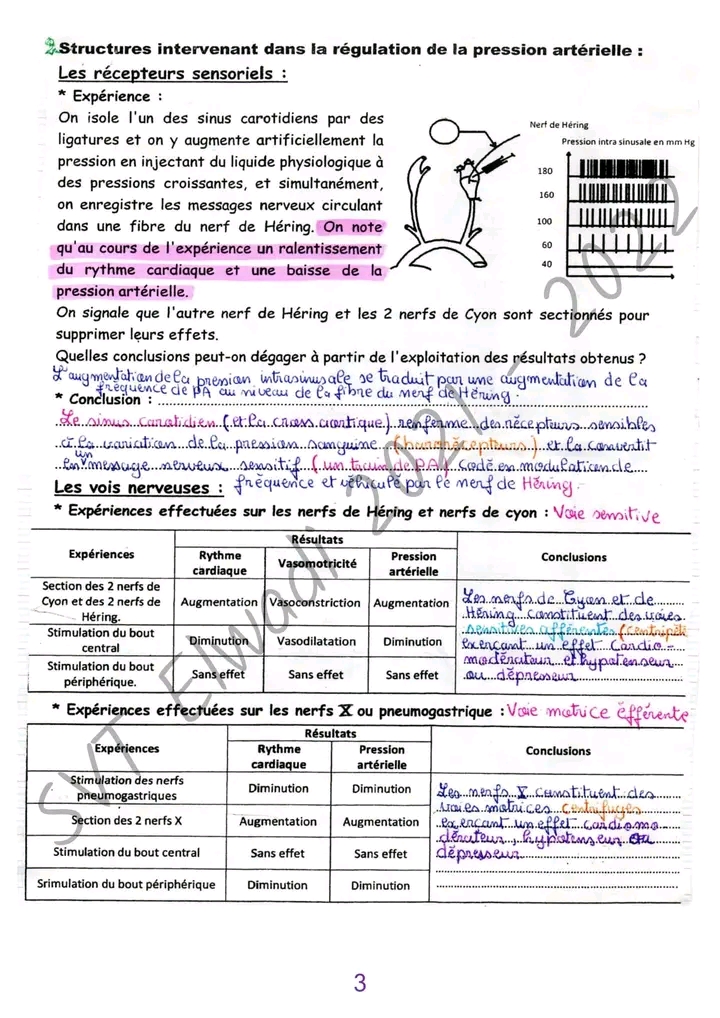 2 Structures intervenant dans la régulation de la pression artérielle :
Les récepteurs sensoriels :
* Expérience :
On isole l'un des sinus carotidiens par des
ligatures et on y augmente artificiellement la
pression en injectant du liquide physiologique à
des pressions croissantes, et simultanément,
on enregistre les messages nerveux circulant
dans une fibre du nerf de Héring. On note
qu'au cours de l'expérience un ralentissement
du rythme cardiaque et une baisse de la
pression artérielle.
Nerf de Héring
Pression intra sinusale en mm Hg
180
160
100
60
40
On signale que l'autre nerf de Héring et les 2 nerfs de Cyon sont sectionnés pour
supprimer leurs effets.
Quelles conclusions peut-on dégager à partir de l'exploitation des résultats obtenus ?
L'augmentation de la pression intrasinusale se traduit par une augmentation de la
fréquence de PA au niveau de la fibre du nerf de Héring.
* Conclusion :
Le sinus carotidien (et la cross aortique) renferme des récepteurs sensibles
à la variation de la pression sanguine (barorécepteurs) et la convertit
en un message nerveux sensitif (un train de PA) codé en modulation de
fréquence et véhiculé par le nerf de Héring.
Les vois nerveuses :
* Expériences effectuées sur les nerfs de Héring et nerfs de cyon : Voie sensitive
Expériences
Résultats
Conclusions
Rythme cardiaque
Vasomotricité
Pression artérielle
Section des 2 nerfs de Cyon et des 2 nerfs de Héring.
Augmentation
Vasoconstriction
Augmentation
Stimulation du bout central
Diminution
Vasodilatation
Diminution
Stimulation du bout périphérique.
Sans effet
Sans effet
Sans effet
Les nerfs de Cyon et de
Héring constituent des voies
sensitives afférentes (centripète
exerçant un effet Cardio-
modérateur et hypotenseur
ou dépresseur
* Expériences effectuées sur les nerfs X ou pneumogastrique : Voie motrice éfférente
Expériences
Résultats
Conclusions
Rythme cardiaque
Pression artérielle
Stimulation des nerfs pneumogastriques
Diminution
Diminution
Section des 2 nerfs X
Augmentation
Augmentation
Stimulation du bout central
Sans effet
Sans effet
Srimulation du bout périphérique
Diminution
Diminution
Les nerfs X constituent des
voies motrices centrifuges
exerçant un effet cardiomo
dérateur, hypotenseur ou
dépresseur
SVT Elwadi 2021 - 2022
3